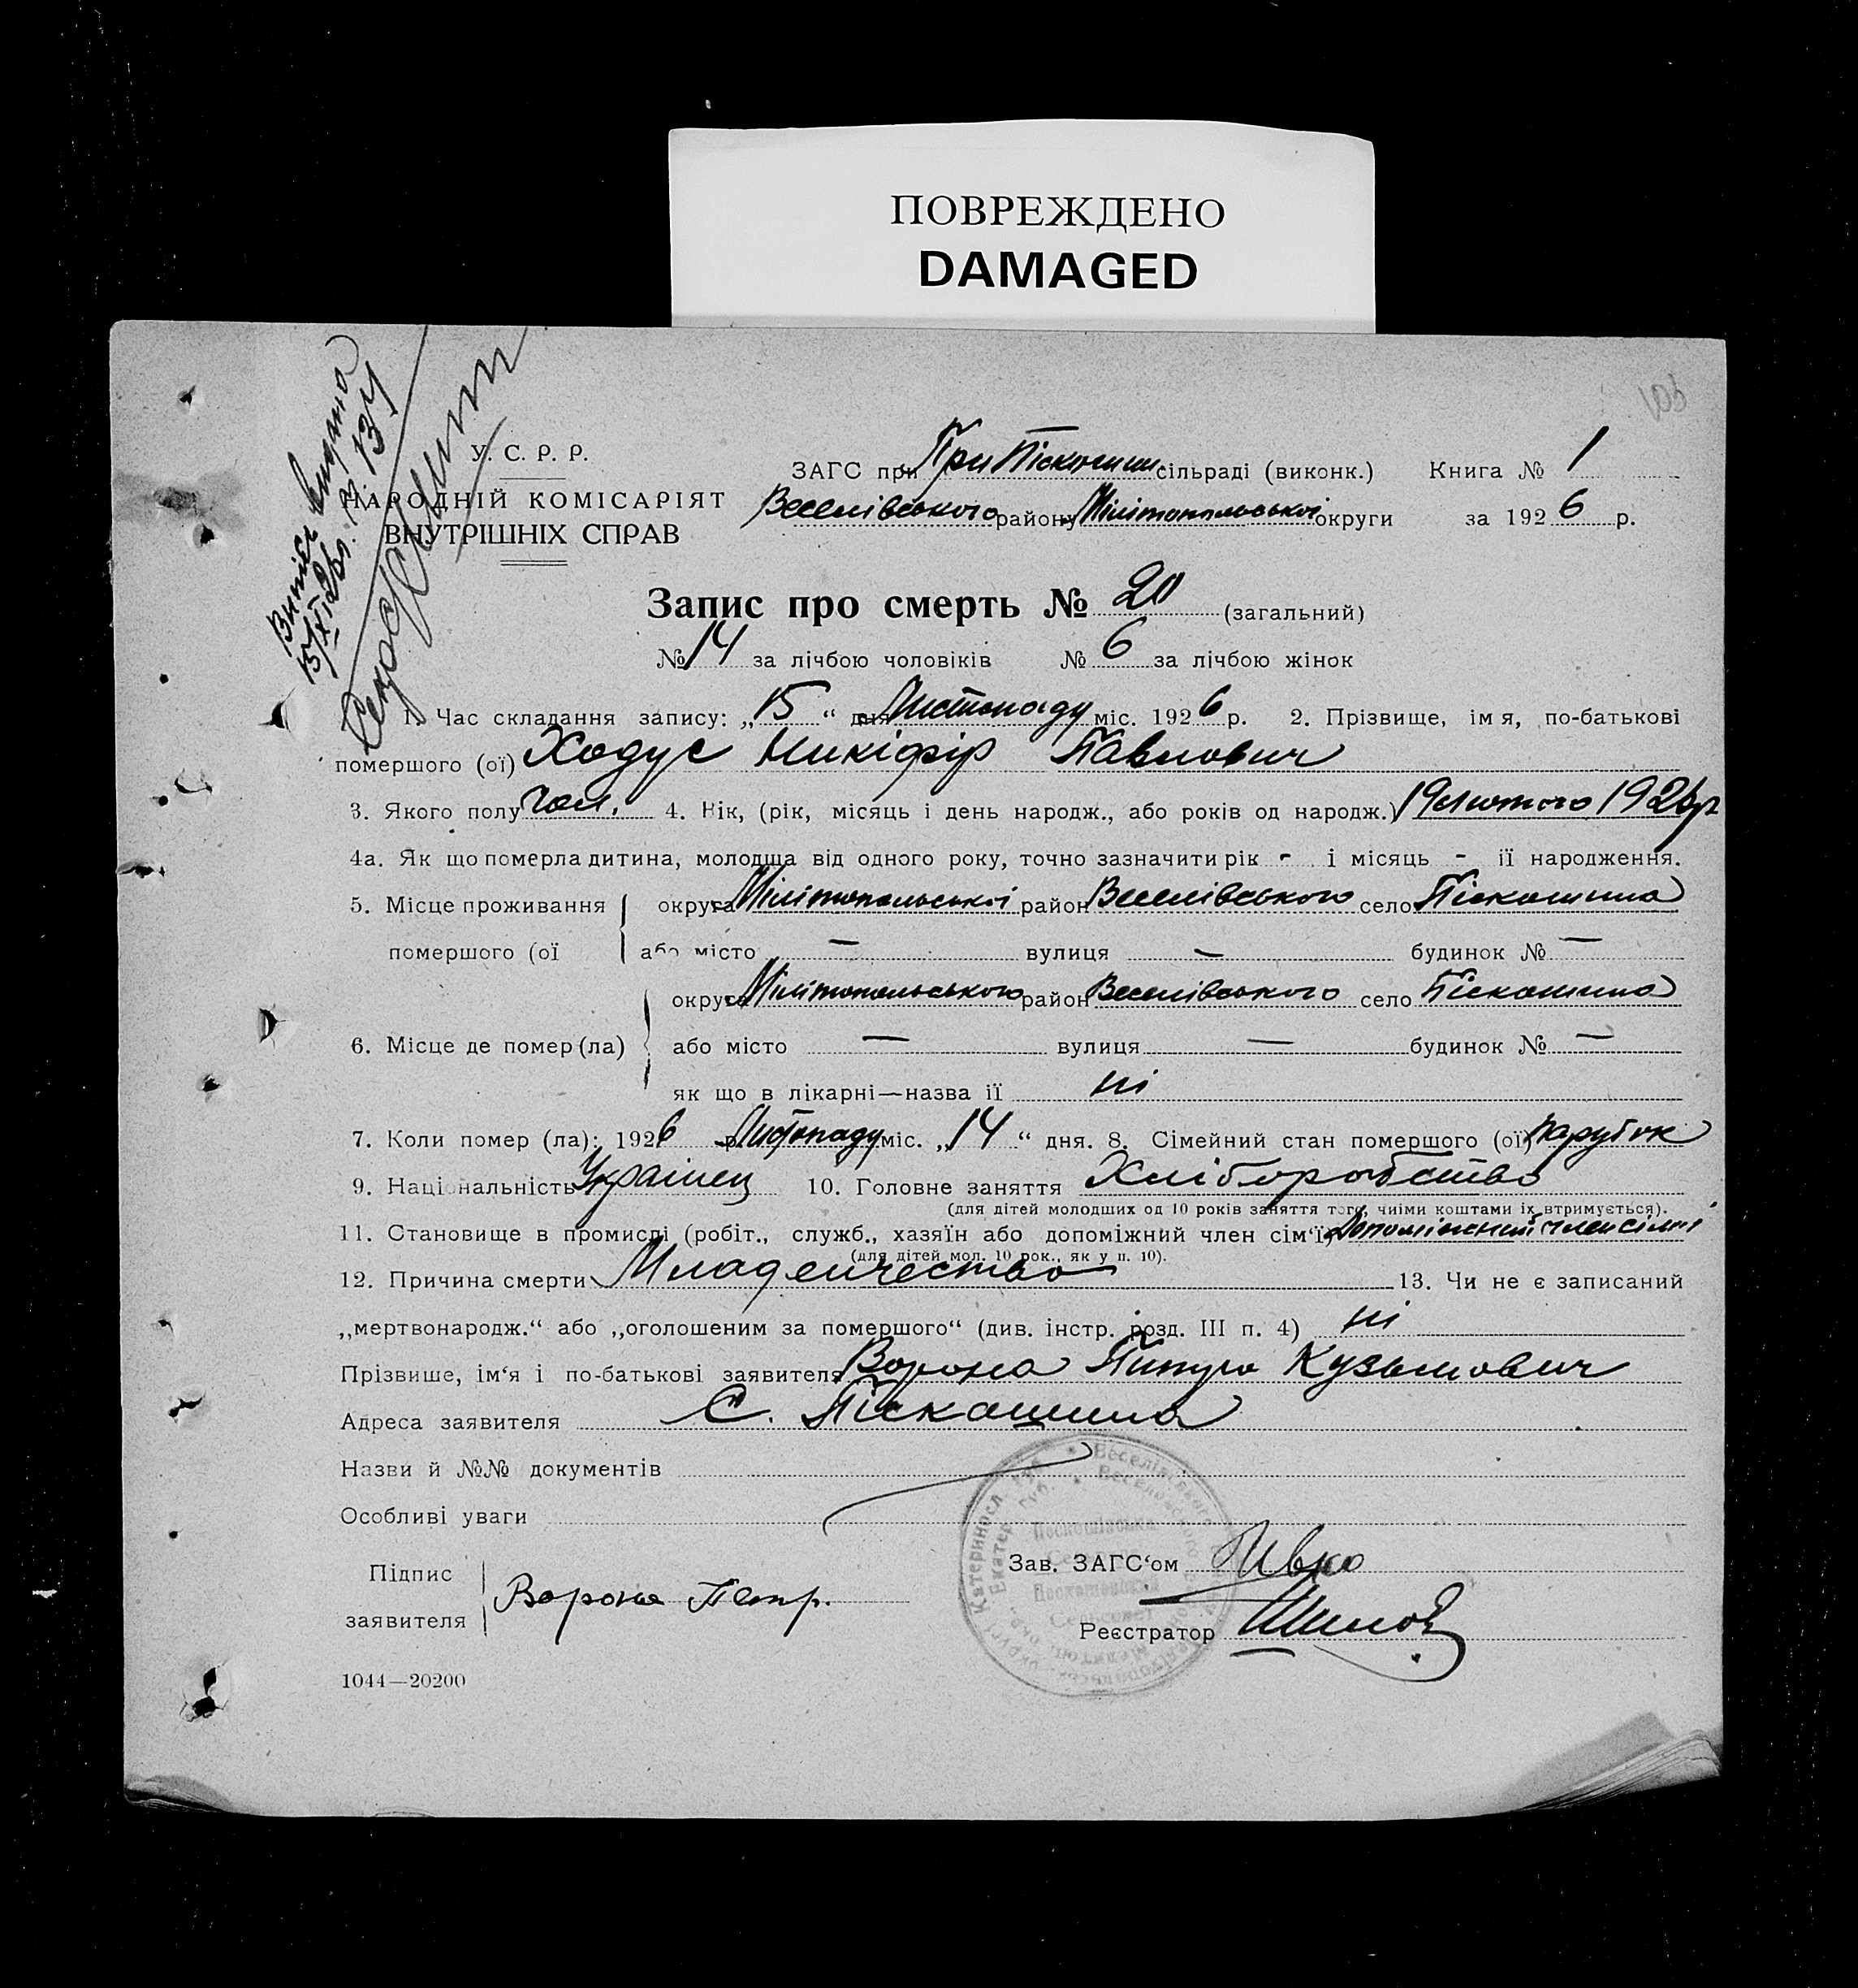 ПОВРЕЖДЕНО
DAMAGED
Випіс видано
15/XI 26 р. № 134
У. С. Р. Р.
НАРОДНІЙ КОМІСАРІЯТ
ВНУТРІШНІХ СПРАВ
ЗАГС при При Піскошин сільраді (виконк.) Книга № 1
Веселівського району Мілітопольської округи за 1926 р.
Запис про смерть № 20 (загальний)
№ 14 за лічбою чоловіків № 6 за лічбою жінок
1. Час складання запису: „15“ дня Листопаду міс. 1926 р. 2. Прізвище, ім я, по-батькові
помершого (ої) Ходус Никіфір Павлович
3. Якого полу чол. 4. Вік, (рік, місяць і день народж., або років од народж.) 19 лютого 1926 р
4а. Як що померла дитина, молодша від одного року, точно зазначити рік - і місяць - її народження.
5. Місце проживання округа Мілітопольської район Веселівського село Піскошина
помершого (ої або місто — вулиця — будинок № —
округа Мілітопольського район Веселівського село Піскошина
6. Місце де помер (ла) або місто — вулиця — будинок № —
як що в лікарні—назва її ні
7. Коли помер (ла): 1926 р. Листопаду міс. „14“ дня. 8. Сімейний стан помершого (ої) парубок
9. Національність Українец 10. Головне заняття Хліборобство
(для дітей молодших од 10 років заняття того, чиїми коштами їх втримується).
11. Становище в промислі (робіт., служб., хазяїн або допоміжний член сім'ї) Допоміжний член сімї
(для дітей мол. 10 рок., як у п. 10).
12. Причина смерти Младенчество 13. Чи не є записаний
„мертвонародж.“ або „оголошеним за помершого“ (див. інстр. розд. III п. 4) ні
Прізвище, ім'я і по-батькові заявителя Ворона Кузьмович
Адреса заявителя С. Піскошина
Назви й №№ документів
Особливі уваги
Підпис
заявителя Ворона Петр.
Зав. ЗАГС'ом
Реєстратор
1044—20200